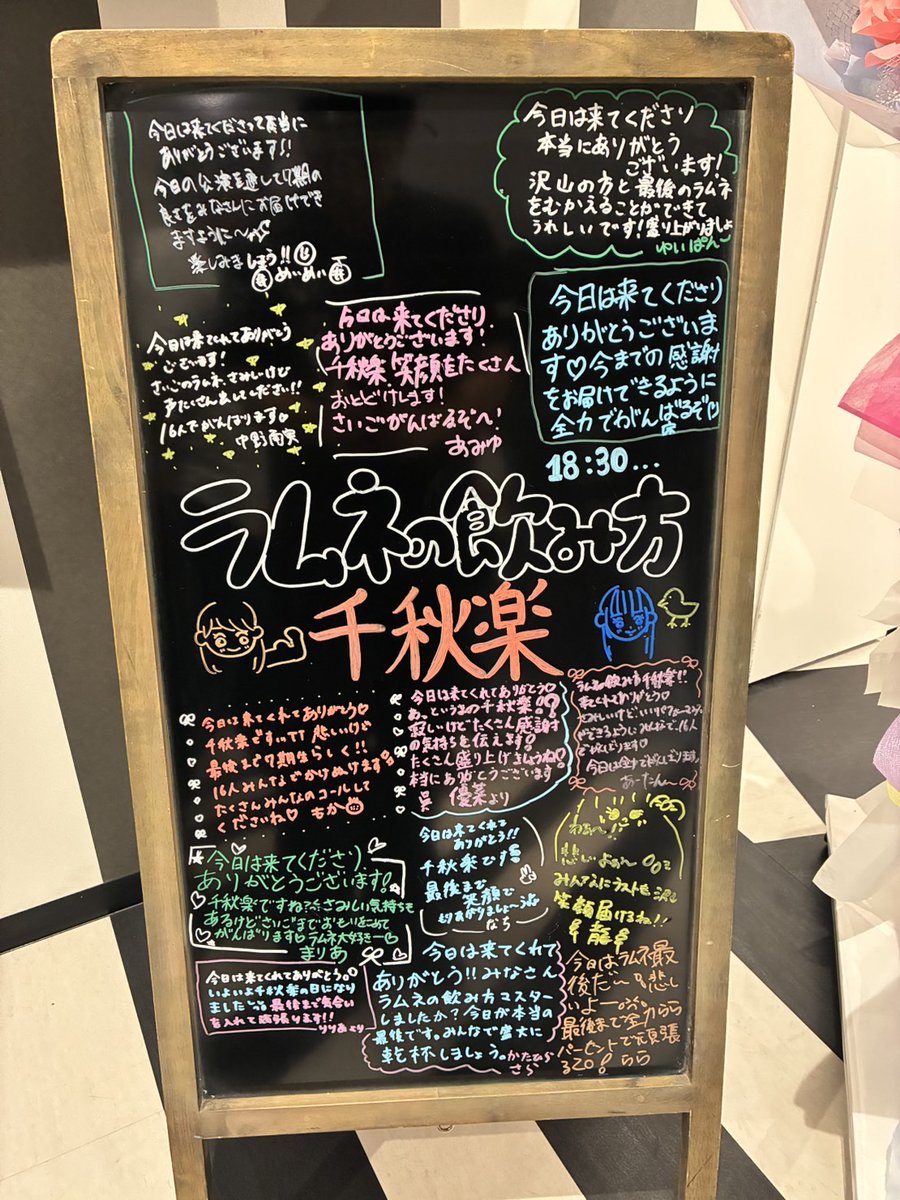 今日は来てくださって本当に
ありがとうございます!!
今日の公演を通して7期の
良さをみなさんにお届けでき
ますように〜
楽しみましょう!!
めいめい
今日は来てくださり
本当にありがとう
ございます!
沢山の方と最後のラムネ
をむかえることができて
うれしいです!盛り上がりましょ
ゆいぽん〜
今日は来てくれてありがとう
ございます!
さいごのラムネ、さみしいけど
声たくさん出してください!!
16人でがんばります
中野南実
今日は来てくださり
ありがとうございます!
千秋楽 笑顔をたくさん
おとどけします!
さいごがんばるぞへ!
あみゆ
今日は来てくださり
ありがとうございま
す♡今までの感謝
をお届けできるように
全力でがんばるぞ
18:30...
ラムネの飲み方
千秋楽
今日は来てくれてありがとう♡
千秋楽です、、TT 悲しいけど
最後まで7期生らしく!!
16人みんなでかけぬけます
たくさんみんなのコールして
くださいね♡ ももか
今日は来てくれてありがとう♡
あ、というまの千秋楽!?
寂しいけどたくさん感謝
の気持ちを伝えます!
たくさん盛り上げましょうね♡
本当にありがとうございます
優菜より
ラムネの飲み方千秋楽!!
来てくれてありがとう♡
できるようにみんなで、16人
で
今日は全力で頑張ります
あーたん〜
今日は来てくれて
ありがとう!!
千秋楽です
最後まで
笑顔で
なち
悲しいよぉ〜
みんなにラストも沢山
笑顔届けるね!!
龍
今日は来てくださり
ありがとうございます!
千秋楽ですねさみしい気持ちも
あるけどさいごまでおもいをこめて
がんばります♡ラムネ大好きー♡
まりあ
今日は来てくれてありがとう。
いよいよ千秋楽の日になり
ました 最後まで気合い
を入れて頑張ります!!
りりあより
今日は来てくれて
ありがとう!!みなさん
ラムネの飲み方マスター
しましたか?今日が本当の
最後です。みんなで盛大に
乾杯しましょう。かたひら
さら
今日はラムネ最
後だ〜悲し
いよー
最後まで全力らら
パーセントで頑張
るZO! らら